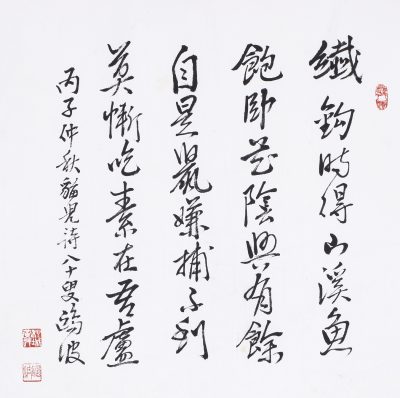 纖鈎時得山溪魚
飽卧花陰興有餘
自是鼠嫌捕不到
莫慚吃素在吾廬
丙子仲秋貓兒詩八十叟鴻波